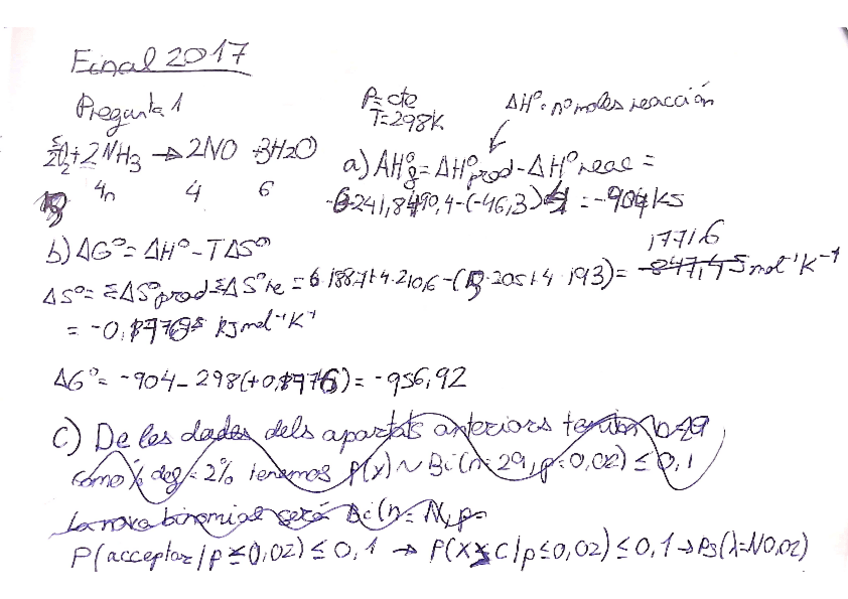 Final 2017
Pregunta 1
P=cte
T=298K
ΔHº·nºmoles reacción
5/2O₂+2NH₃ → 2NO +3H2O
4n 4 6
a) ΔHºg=ΔHºprod-ΔHºreac =
-6·241,8+90,4-(-46,3)·4 = -904KJ
b) ΔGº= ΔHº-TΔSº
1771,6
ΔSº= ΣΔSºprod-ΣΔSºre = 6·188,7+4·210,6-(5·205+4·193)= 847,45 mol⁻¹K⁻¹
= -0,1776 kJmol⁻¹K⁻¹
ΔGº= -904-298(+0,1776)= -956,92
c) De les dades dels apartats anteriors tenim n=29
como % deg=2% tenemos P(x)~Bi(n=29,p=0,02)≤0,1
La nova binomial será Bi(n=N,p=
P(acceptar/p≤0,02)≤0,1 → P(X≤C/p≤0,02)≤0,1→Ps(λ=N0,02)